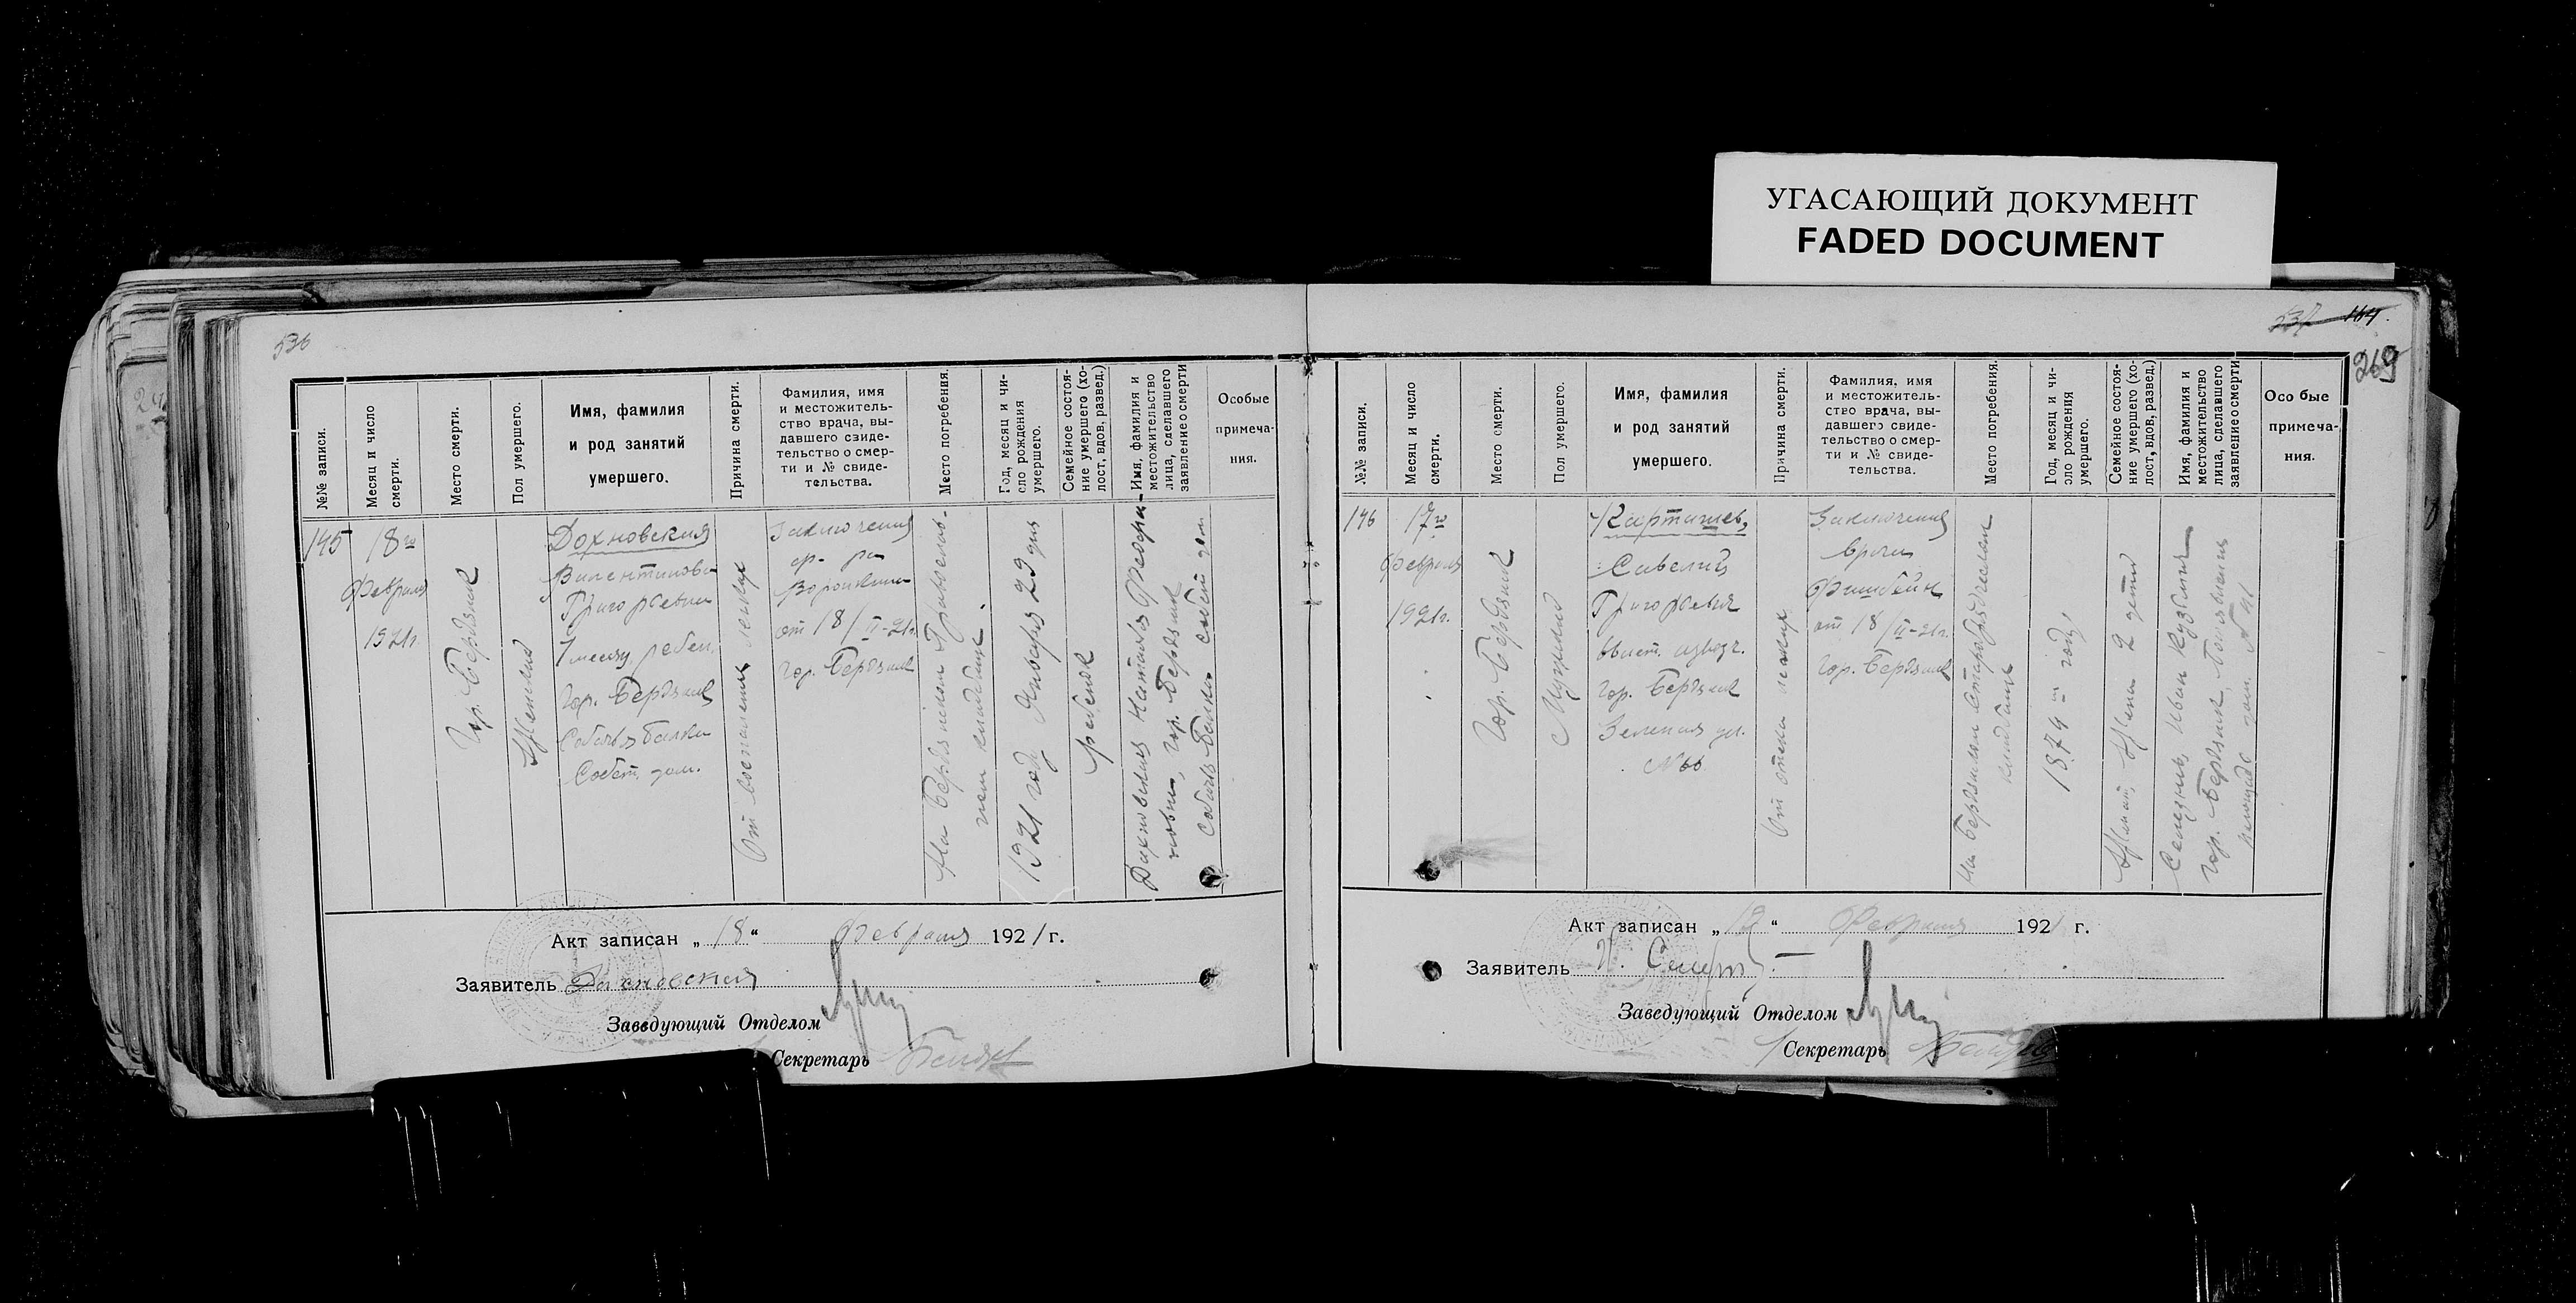 УГАСАЮЩИЙ ДОКУМЕНТ
FADED DOCUMENT
536
№№ записи.
Месяц и число
смерти.
Место смерти.
Пол умершего.
Имя, фамилия
и род занятий
умершего.
Причина смерти.
Фамилия, имя
и местожитель-
ство врача, вы-
давшего свиде-
тельство о смер-
ти и № свиде-
тельства.
Место погребения.
Год, месяц и чи-
сло рождения
умершего.
Семейное состоя-
ние умершего (хо-
лост, вдов, развед.)
Имя, фамилия и
местожительство
лица, сделавшего
заявление о смерти
Особые
примеча-
ния.
145
18го
Февраля
1921г.
гор. Бердянск
Женский
Дохновская
Валентинова
Григорьевна
1 месяц. ребен.
гор. Бердянск
Собачья балка
Совет. дом.
От воспаления легких
Заключения
Воронкина
от 18/II-21г.
гор. Бердянск
На Бердянском Православ-
ном кладбище.
1921 год Января 23 дня
ребенок
Дахновская Наталия Федори-
новна, гор. Бердянск
Собачья балка совет дом
Акт записан „18“ Февраля 1921 г.
Заявитель Дахновская
Заведующий Отделом
Секретарь
537 164.
269
№№ записи.
Месяц и число
смерти.
Место смерти.
Пол умершего.
Имя, фамилия
и род занятий
умершего.
Причина смерти.
Фамилия, имя
и местожитель-
ство врача, вы-
давшего свиде-
тельство о смер-
ти и № свиде-
тельства.
Место погребения.
Год, месяц и чи-
сло рождения
умершего.
Семейное состоя-
ние умершего (хо-
лост, вдов, развед.)
Имя, фамилия и
местожительство
лица, сделавшего
заявление о смерти
Особые
примеча-
ния.
146
17го
Февраля
1921г.
гор. Бердянск
Мужской
Картишев,
Савелий
Григорьевич
бывш. извозч.
гор. Бердянск
Зеленая ул.
№66
От отека легких
Заключения
врача
Фишбейн
от 18/II-21г.
гор. Бердянск
На Бердянском Старобрядческом
кладбище
1874 - года
Женат, Жена 2 детей
Селезнев Иван Кузьмич
гор. Бердянск,
дом. № 41
Акт записан „18“ Февраля 192 г.
Заявитель И. Селезнев
Заведующий Отделом
Секретарь